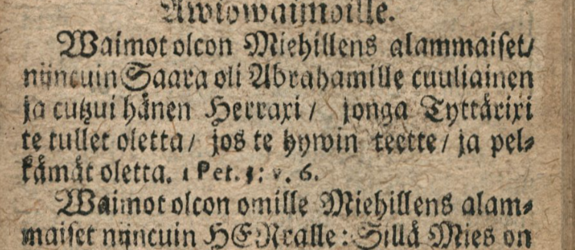 Awiowaimoille.
Waimot olcon Miehillens alammaiset/
nijncuin Saara oli Abrahamille cuuliainen
ja cutzui hänen Herraxi / jonga Tyttärixi
te tullet oletta / jos te hywin teette / ja pel-
kämät oletta. 1 Pet. 3: v. 6.
Waimot olcon omille Miehillens alam-
maiset nijncuin HERralle: Sillä Mies on